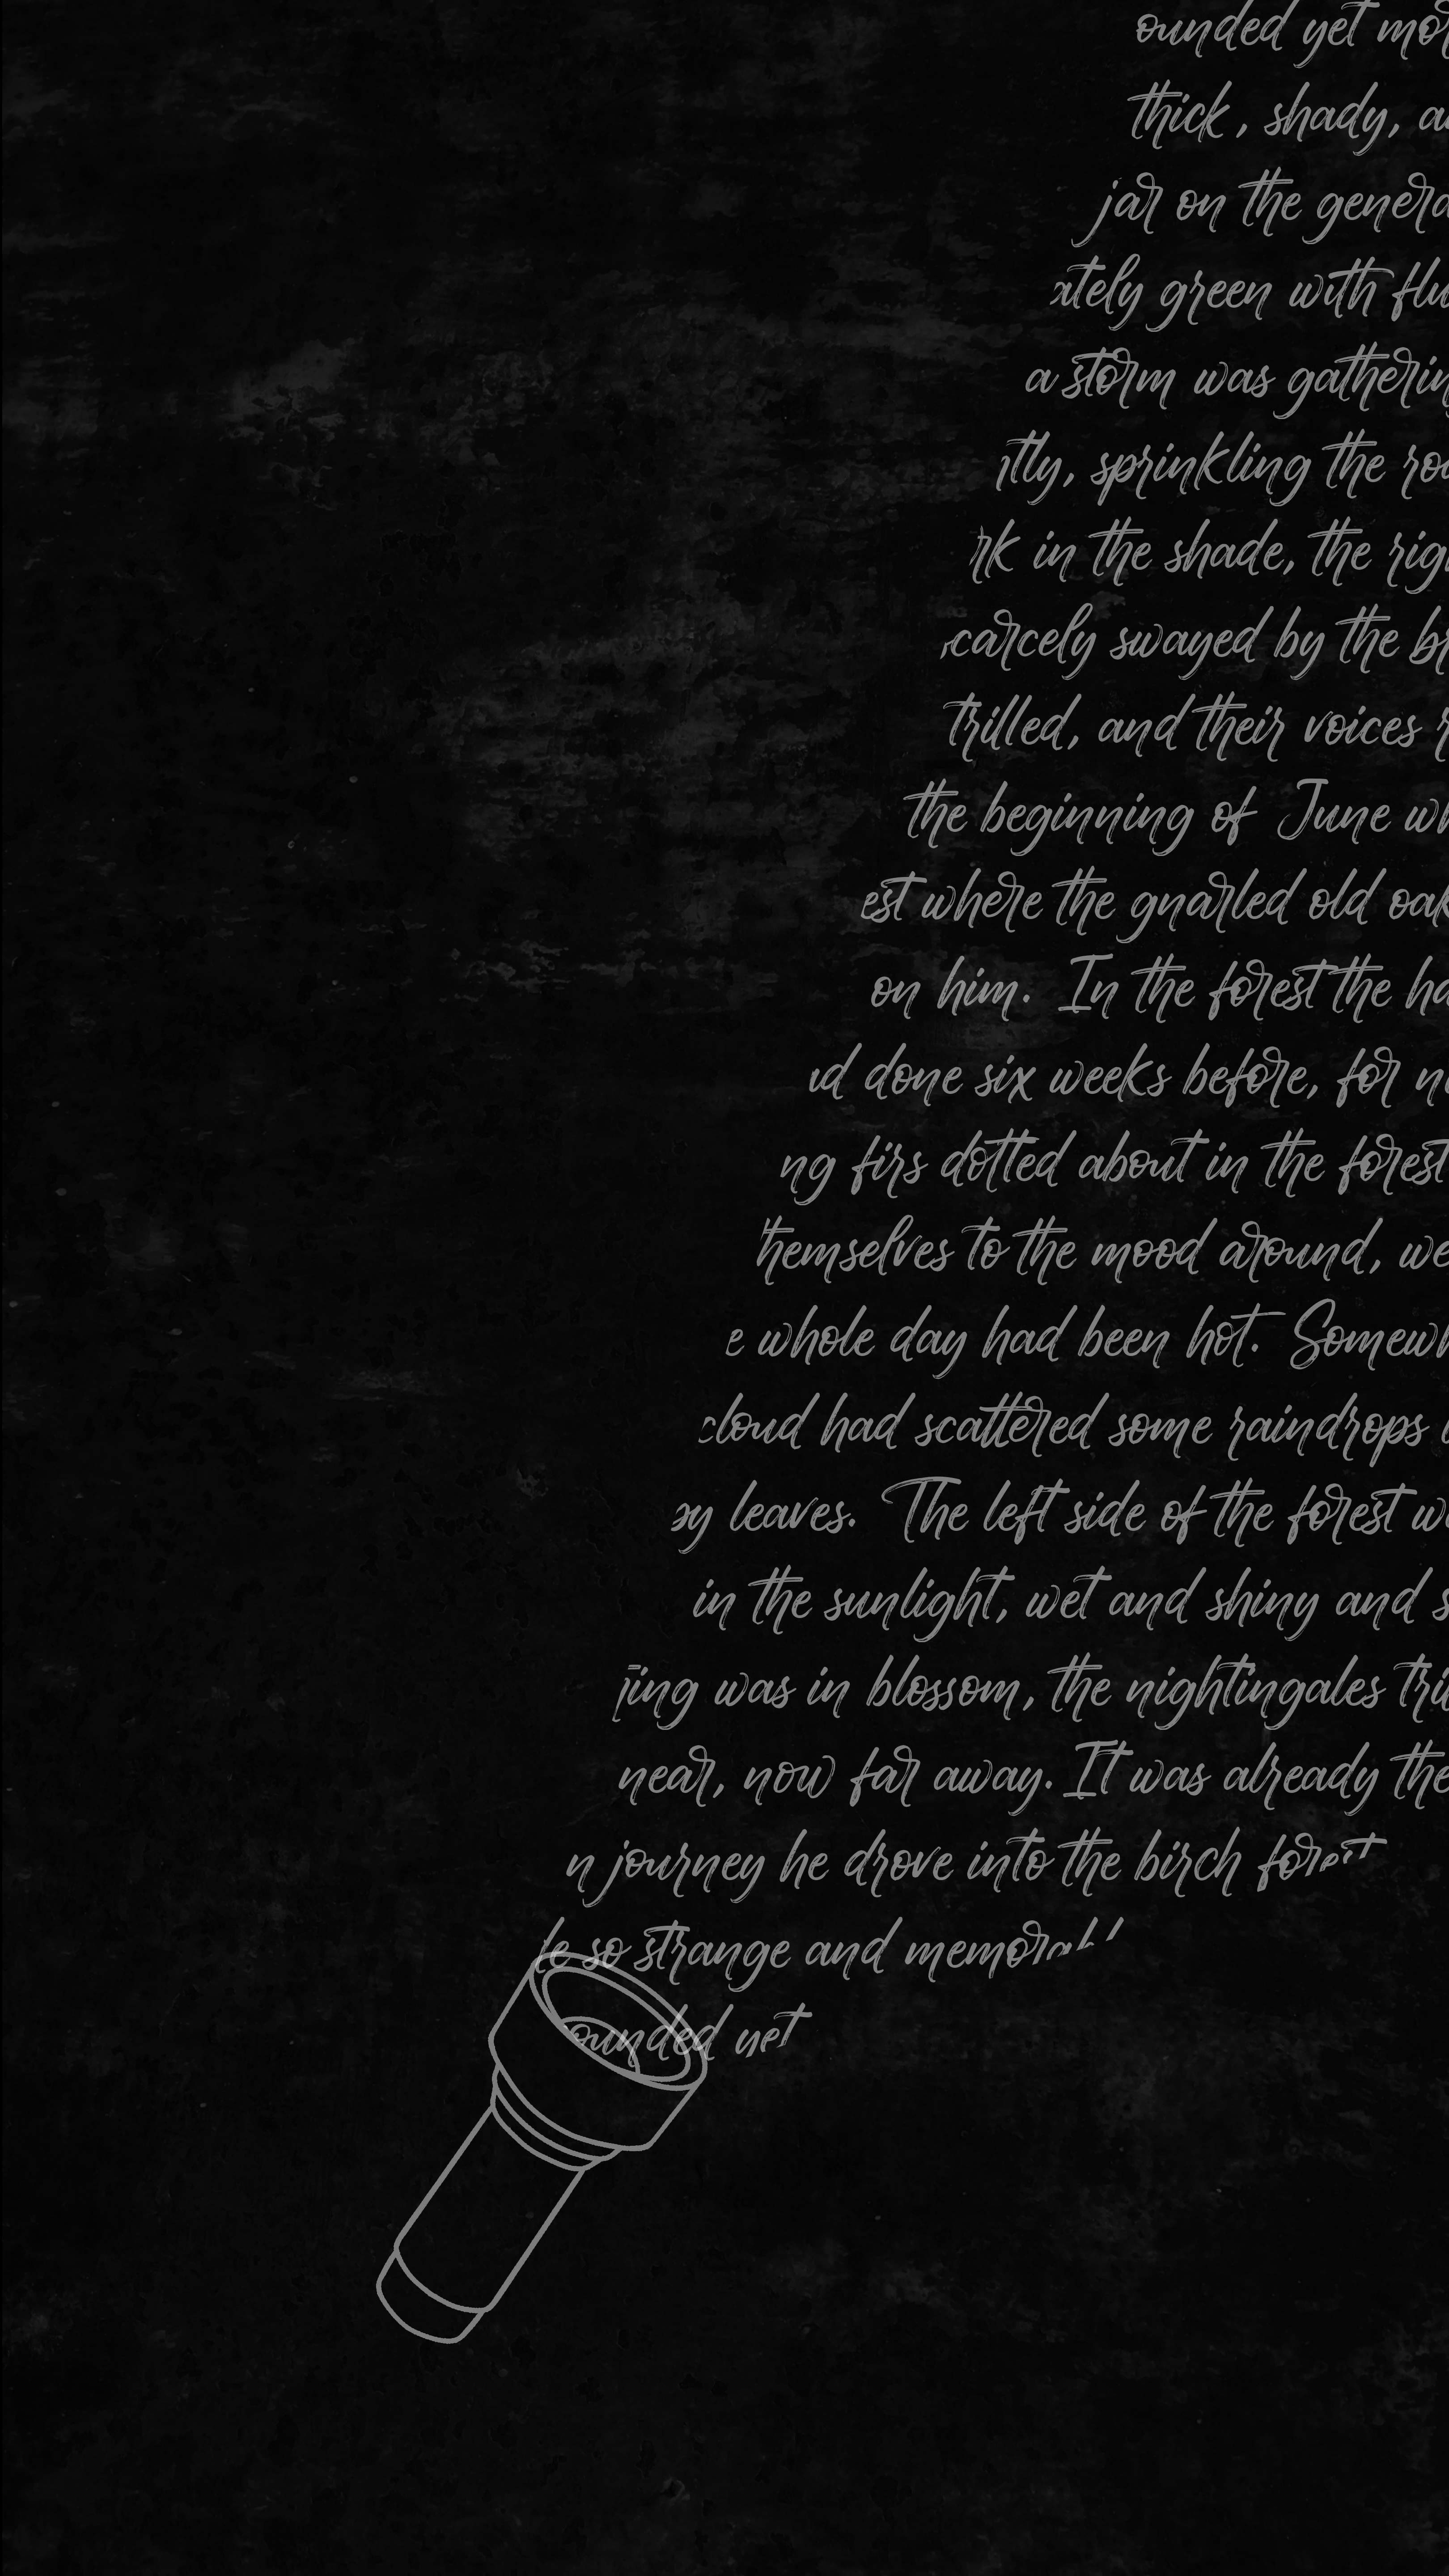 ounded yet mor
thick, shady, a
jar on the genera
ately green with flu
a storm was gatherin
tly, sprinkling the roa
rk in the shade, the rig
carcely swayed by the br
trilled, and their voices r
the beginning of June wh
est where the gnarled old oak
on him. In the forest the ha
d done six weeks before, for n
ng firs dotted about in the forest
themselves to the mood around, we
e whole day had been hot. Somewh
cloud had scattered some raindrops
py leaves. The left side of the forest w
in the sunlight, wet and shiny and s
ing was in blossom, the nightingales tri
near, now far away. It was already the
n journey he drove into the birch forest
le so strange and memorabl
ounded yet